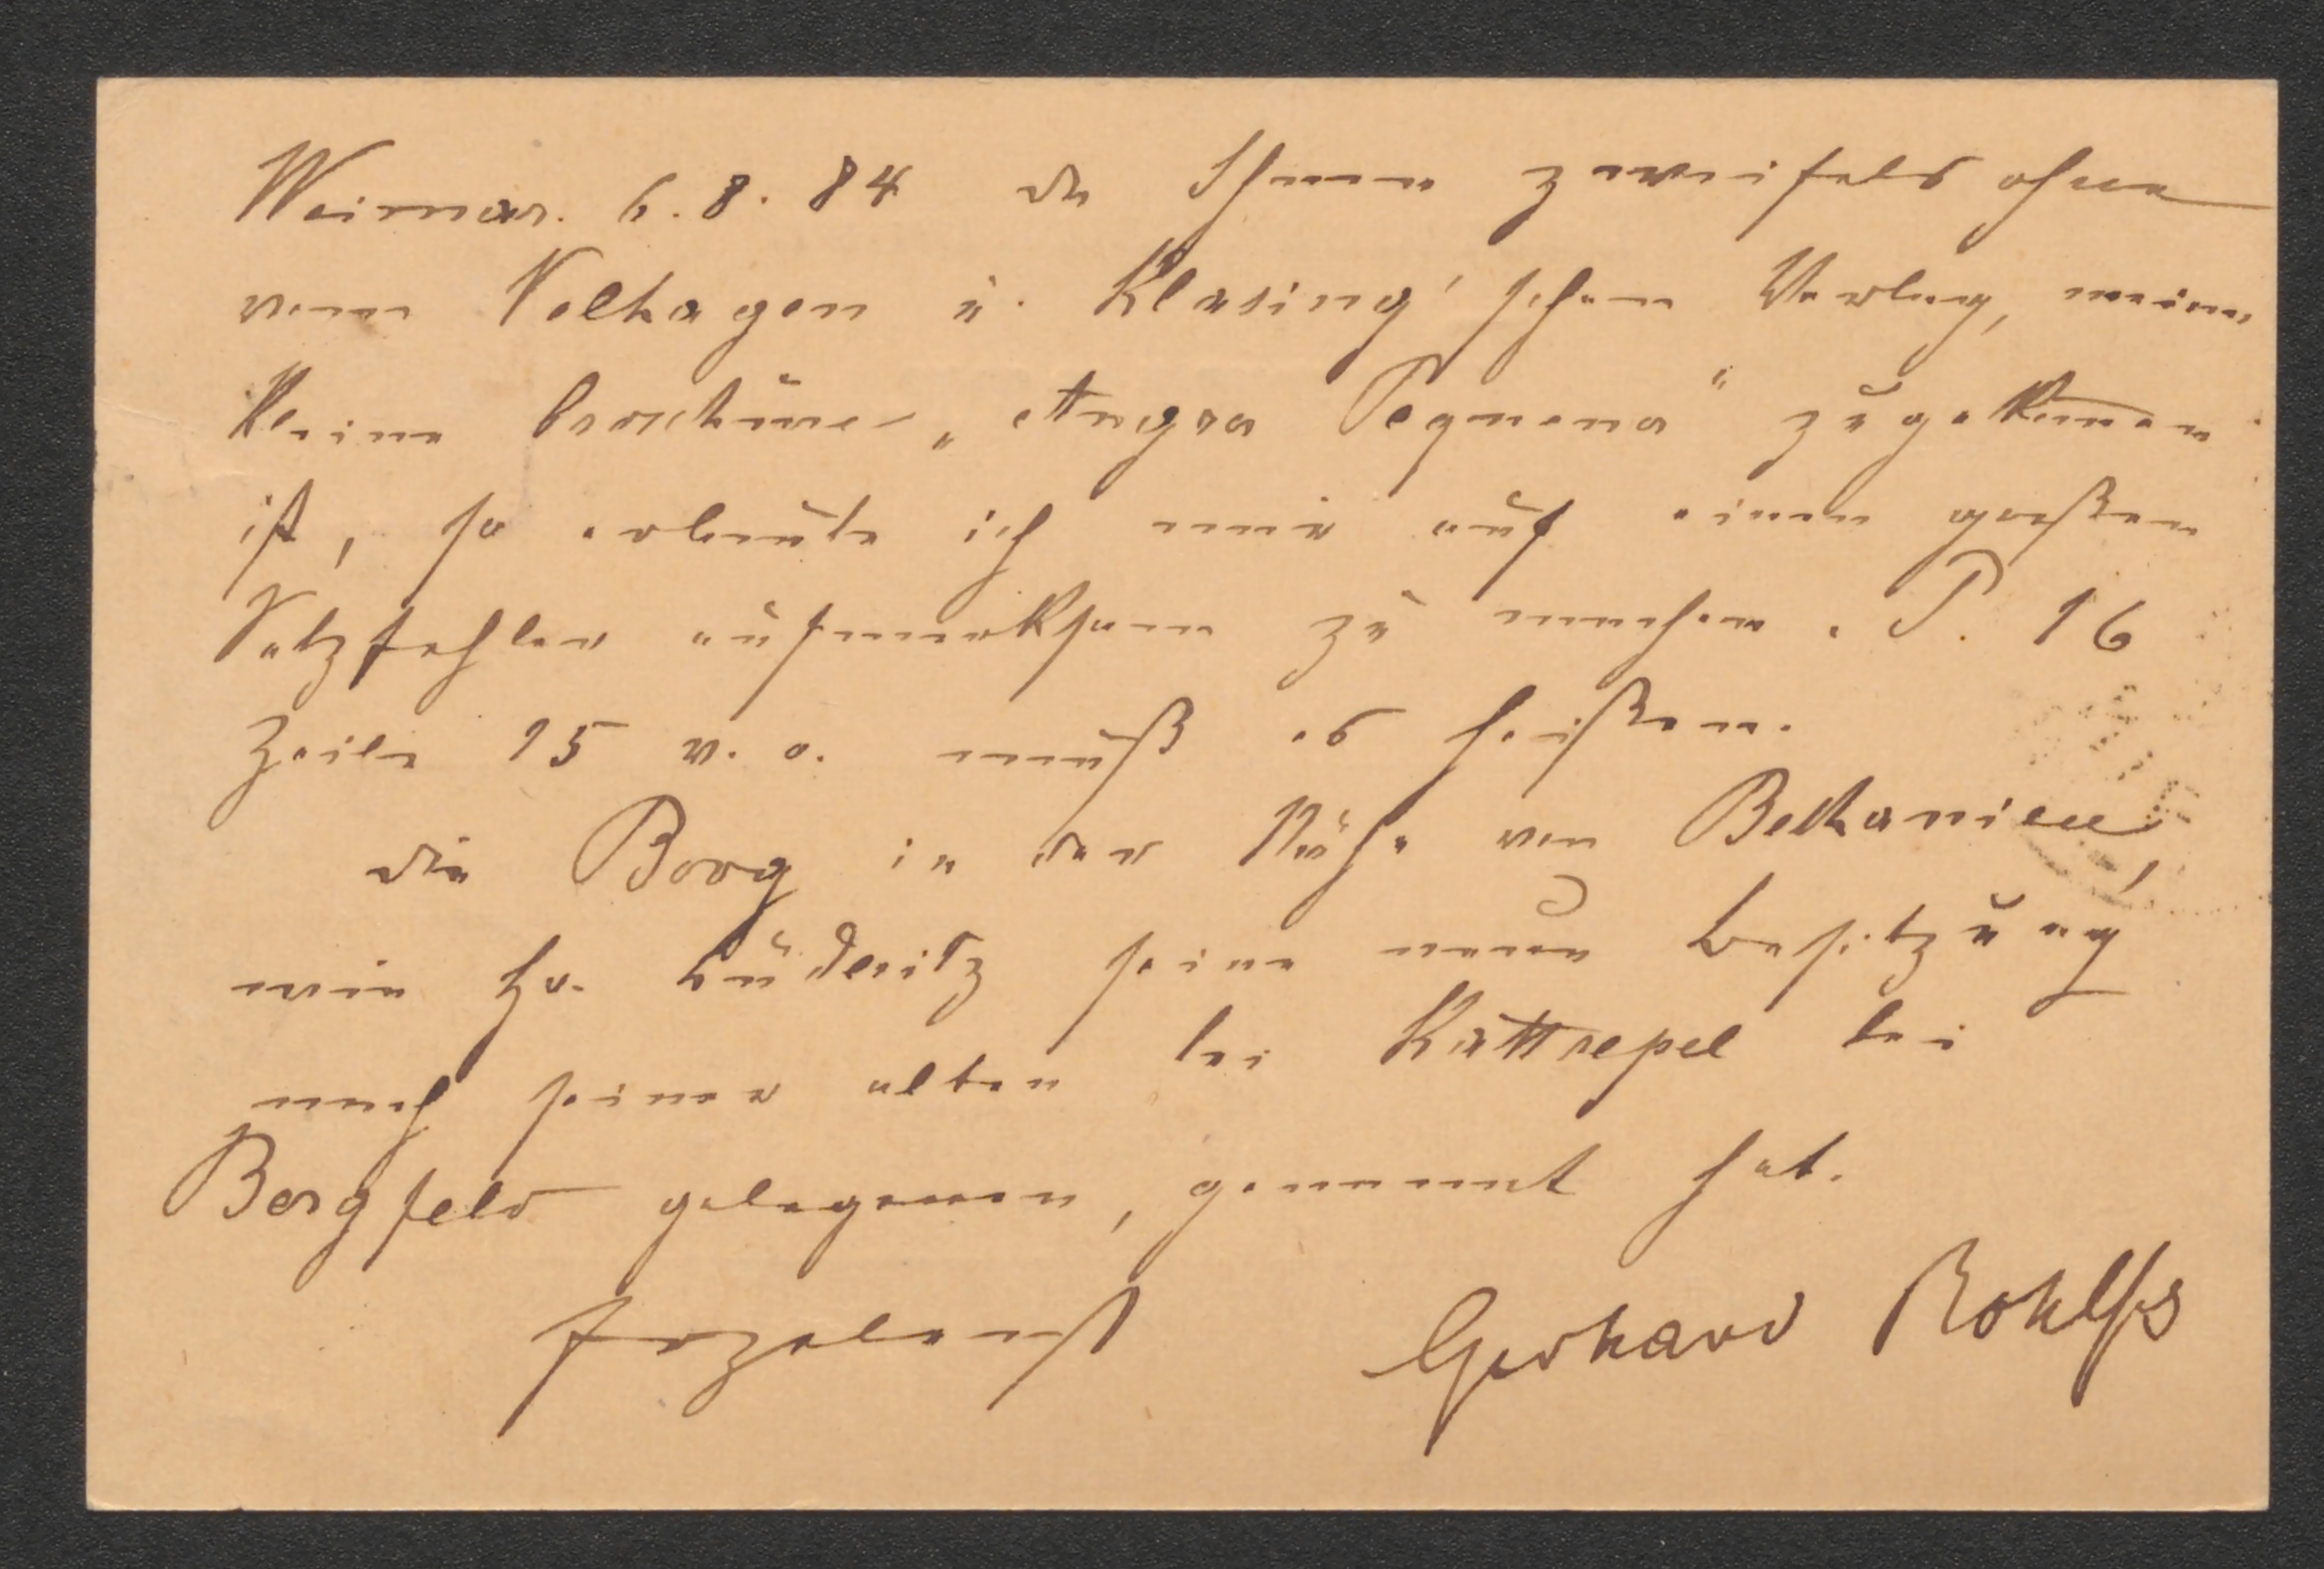 Weimar. 6.8.84 da Ihnen zweifels ohne
vom Velhagen u. Klasing'schen Verlag, meine
kleine Broschüre „Angra Pequena" zugekom̄en
ist, so erlaube ich mir auf einen großen
Satzfehler aufmerksam zu machen. P. 16
Zeile 15 v. o. muß es heißen.
die Borg in der Nähe von Bethanien,
wie Hr. Lüderitz seine neue Besitzung
nach seiner alten bei Kattrepel bei
Borgfeld gelegenen, genannt hat.
Gerhard Rohlfs